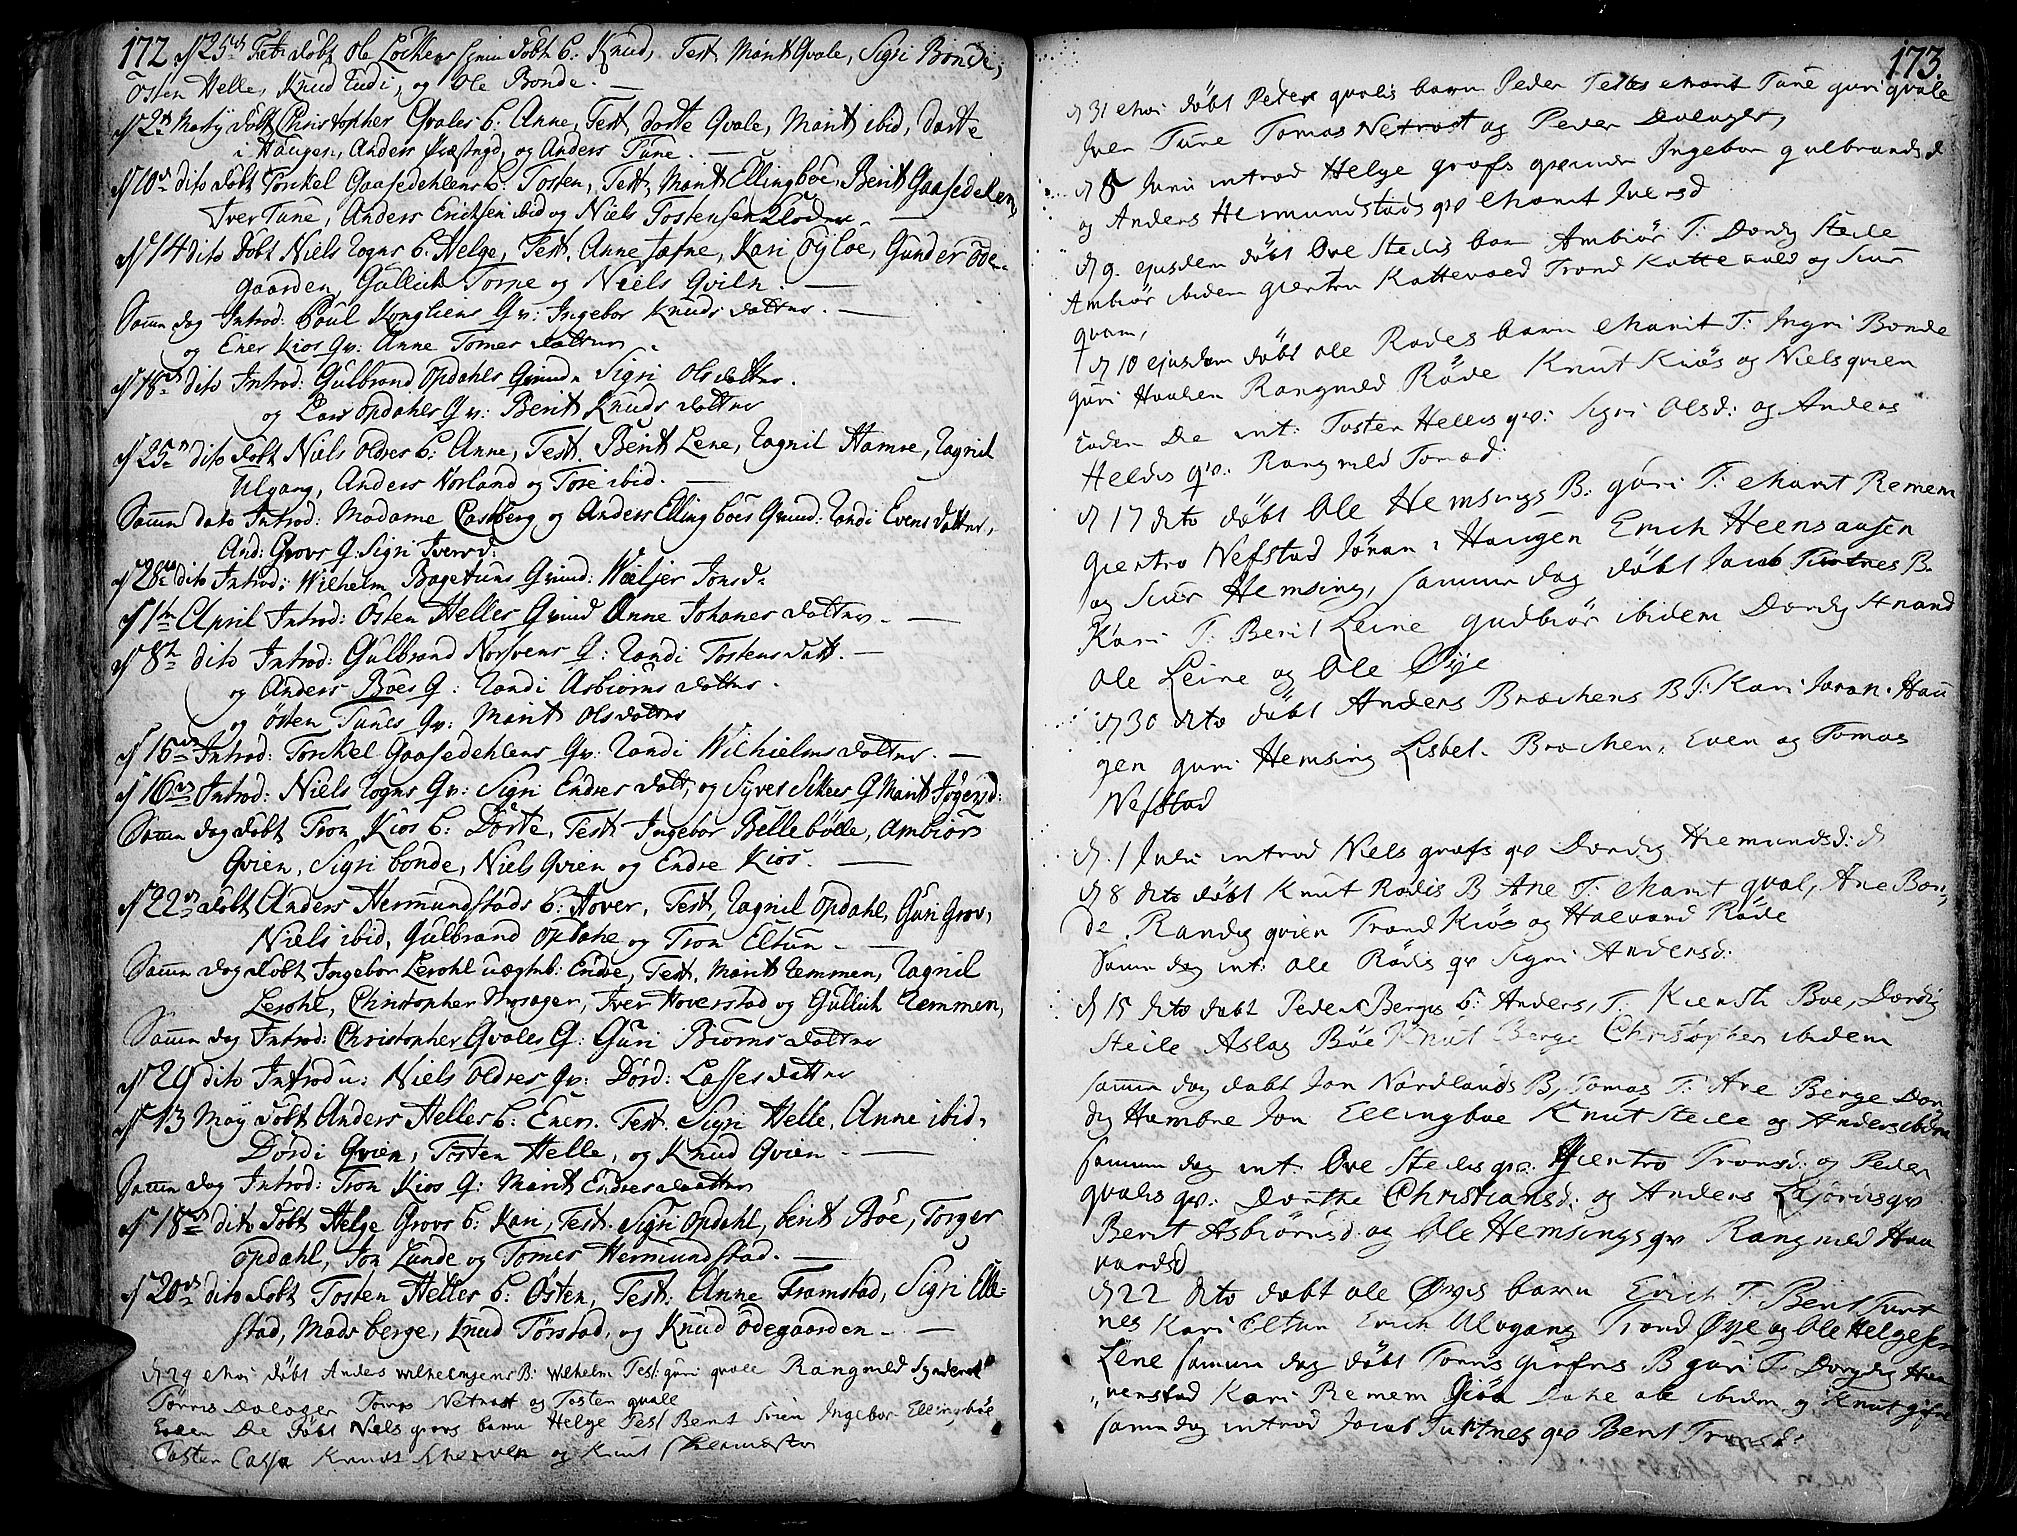 172 d 25de Febr døbt Ole Løckens grinu døbt b: Knud, Test Marit Qvale, Sigri Bonde,
Østen Helle, Knud Tudi, og Ole Bonde.
d 2de Marty døbt Christopher Qvales b: Anne, Test, dorte Qvale, Marit ibid, dorte
i Haugen, Anders Præstngd, og Anders Tune.
d 10de dito døbt Torkel Gaasedehlens b: Tosten, Test, Marit Ellingböe, Berit Gaasedelen,
Iver Tune, Anders Erichsen ibid og Niels Tostensen
d 14 dito døbt Niels Rogns b: Helge, Test. Anne Jæfne, Kari Øyloe, Gunder Øde-
gaarden, Gullich Torpe og Niels Qviln.
Samn dag Introd: Poul Kongliens Qv: Ingebor Knuds datter.
og Ener Kios Qv: Anne Tomes datter.
d 18de dito Introd: Gulbrand Opdahls Qvind Sigri Olsdatter.
og Lars Opdahls Qv: Berit Knuds datter
d 25de dito døbt Niels Oldres b: Anne, Test. Berit Lene, Ragnil Hamre, Ragnil
Ulgang, Anders Norland og Tore ibid.
Samn dato Introd: Madame Castberg og Anders Ellingböes Qvind: Randi Evensdatter,
And: Grovs Q: Sigri Iversd:
d 28de dito Introd: Wilhelm Bagetuns Qvind: Weljer Jonsd:
d 1te April Introd: Østen Helles Qvind Anne Johanes datter.
d 8de dito Introd: Gulbrand Norsvens Q: Randi Tostens datt.
og Anders Böes Q: Randi Asbiørns datter.
og Østen Tunes Qv: Marit Olsdatter
d 15de Introd: Torkel Gaasedehlens Qv: Randi Wilhielms datter.
d 16de Introd: Niels Rogns Qv: Sigri Endres datt, og Syver Q Marit
Samn dag døbt Tron Kios b: Dorte, Test Ingebor Belleböele, Ambior
Qvien, Sigri bonde, Niels Qvien og Endre Kios.
d 22de døbt Anders Hermundstads b: Hover, Test, Ragnil Opdahl, Guri Grov,
Niels ibid, Gulbrand Opdahl og Tron Eltun.
Samn dag døbt Ingebor Lerohl uægtb: Endre, Test, Marit Remmen, Ragnil
Lerohl, Christopher, Iver Hoverstad og Gullich Remmen,
Samn dag Introd: Christopher Qvales Q: Guri Biørns datter
d 29 dito Introdu: Niels Oldres Qv: Dörd: Lasses datter
d 13 May døbt Anders Helles b: Ener. Test. Sigri Helle, Anne ibid,
Dördi Qvien, Tosten Helle, og Knud Qvien.
Samn dag Introd: Tron Kios Q: Marit Endresdatter
d 18de dito døbt Helge Grovs b: Kari, Test. Sigri Opdahl, berit Böe, Torger
Opdahl, Jon Lunde og Tomes Hermundstad.
d 20de dito døbt Tosten Helles b: Østen, Test: Anne Framstad, Sigri Elle-
stad, Mads berge, Knud Törstad, og Knud Ödegaarden.
d 29 Moi döbt Andes Wilhelmsens B: Wilhelm Test: guri qvale Rangnild
Törris Dologer Tomas Netrost og Tosten qvale
Eoden Die Döbt Niels grovs barn Helge Test Berit Ingebor Ellingböe
Tosten og Knut
173.
d 31 Moi döbt Peders qvalis barn Peder Testes Marit Tune guri qvale
Iver Tune Tomas Netrost og Peder Dologer,
d 8 Juni introd Helge grofs qvinde Ingebor gulbrandsd
og Anders Hermundstads qv Marit Iversd
d 9. ejusdem döbt Ove Steilis barn Ambiör T: Dordy Steile
Ambiör ibidem gientru Kattevold Trond Kattevold og Siur
qvam,
d 10 ejusdem döbt ole Rödes barn Marit T: Ingri Bonde
guri Haalien Rangnild Röde Knut Kiös og Niels qvien
Eodem Die int: Tosten Helles qv: Sigri Olsd: og Anders
Heldes qv: Rangnild Tomasd:
d 17 dito döbt Ole Hemsings B: guri T: Marit Remem
gientro Nefstad Jöran i Haugen Erich Heensausen
og Siur Hemsing, sammen dag döbt Jacob Turtnes B.
Kari T: Berit Leine gudbiör ibidem Dordy Strand
Ole Leine og Ole Öye
d 30 dito döbt Anders Bræchens B T: Kari Joran i Hau
gen guri Hemsing Lisbet Bræchen, Even og Tomas
Nefstad
d. 1 Juli introd Niels grofs qv Dordy Hiemundsd:
d 8 dito döbt Knut Rödis B Ane T: Marit qval, Ane Bon,
de, Randy qvien Trond Kiös og Halvord Röde
Samn dag int: ole Rödis qv Sigri Andersd:
d 15 dito döbt Peder Bergs b: Anders, T: Kiersti Boe, Dordy
Steile Aslag Böe Knut Berge Christopher ibidem
samm dag döbt Jon Nordlands B, Tomas T: Ane Berge Dor
dy Hambre Jon Ellingboe Knut Steile og Anders ibidm
samm dag int: Ove Steiles qv: Gientro Tronsd: og Peder
qvalis qv: Dorthe Christiansd: og Anders qv
Berit Asbiörnsd: og Ole Hemsings qv Rangnild Haa
vardsd
d 22 dito döbt ole Öyes barn Erich T: Berit Turt
nes Kari Eltun Erich Ulvgang Trond Öye og Ole Helgesen
Lene samm dag döbt Torris Giefnes B guri T: Dordy Haa
venstad Kari Remem Ole ibidem og Knut
samm dag introd Jacob Turtnes qv Berit Tronsd: